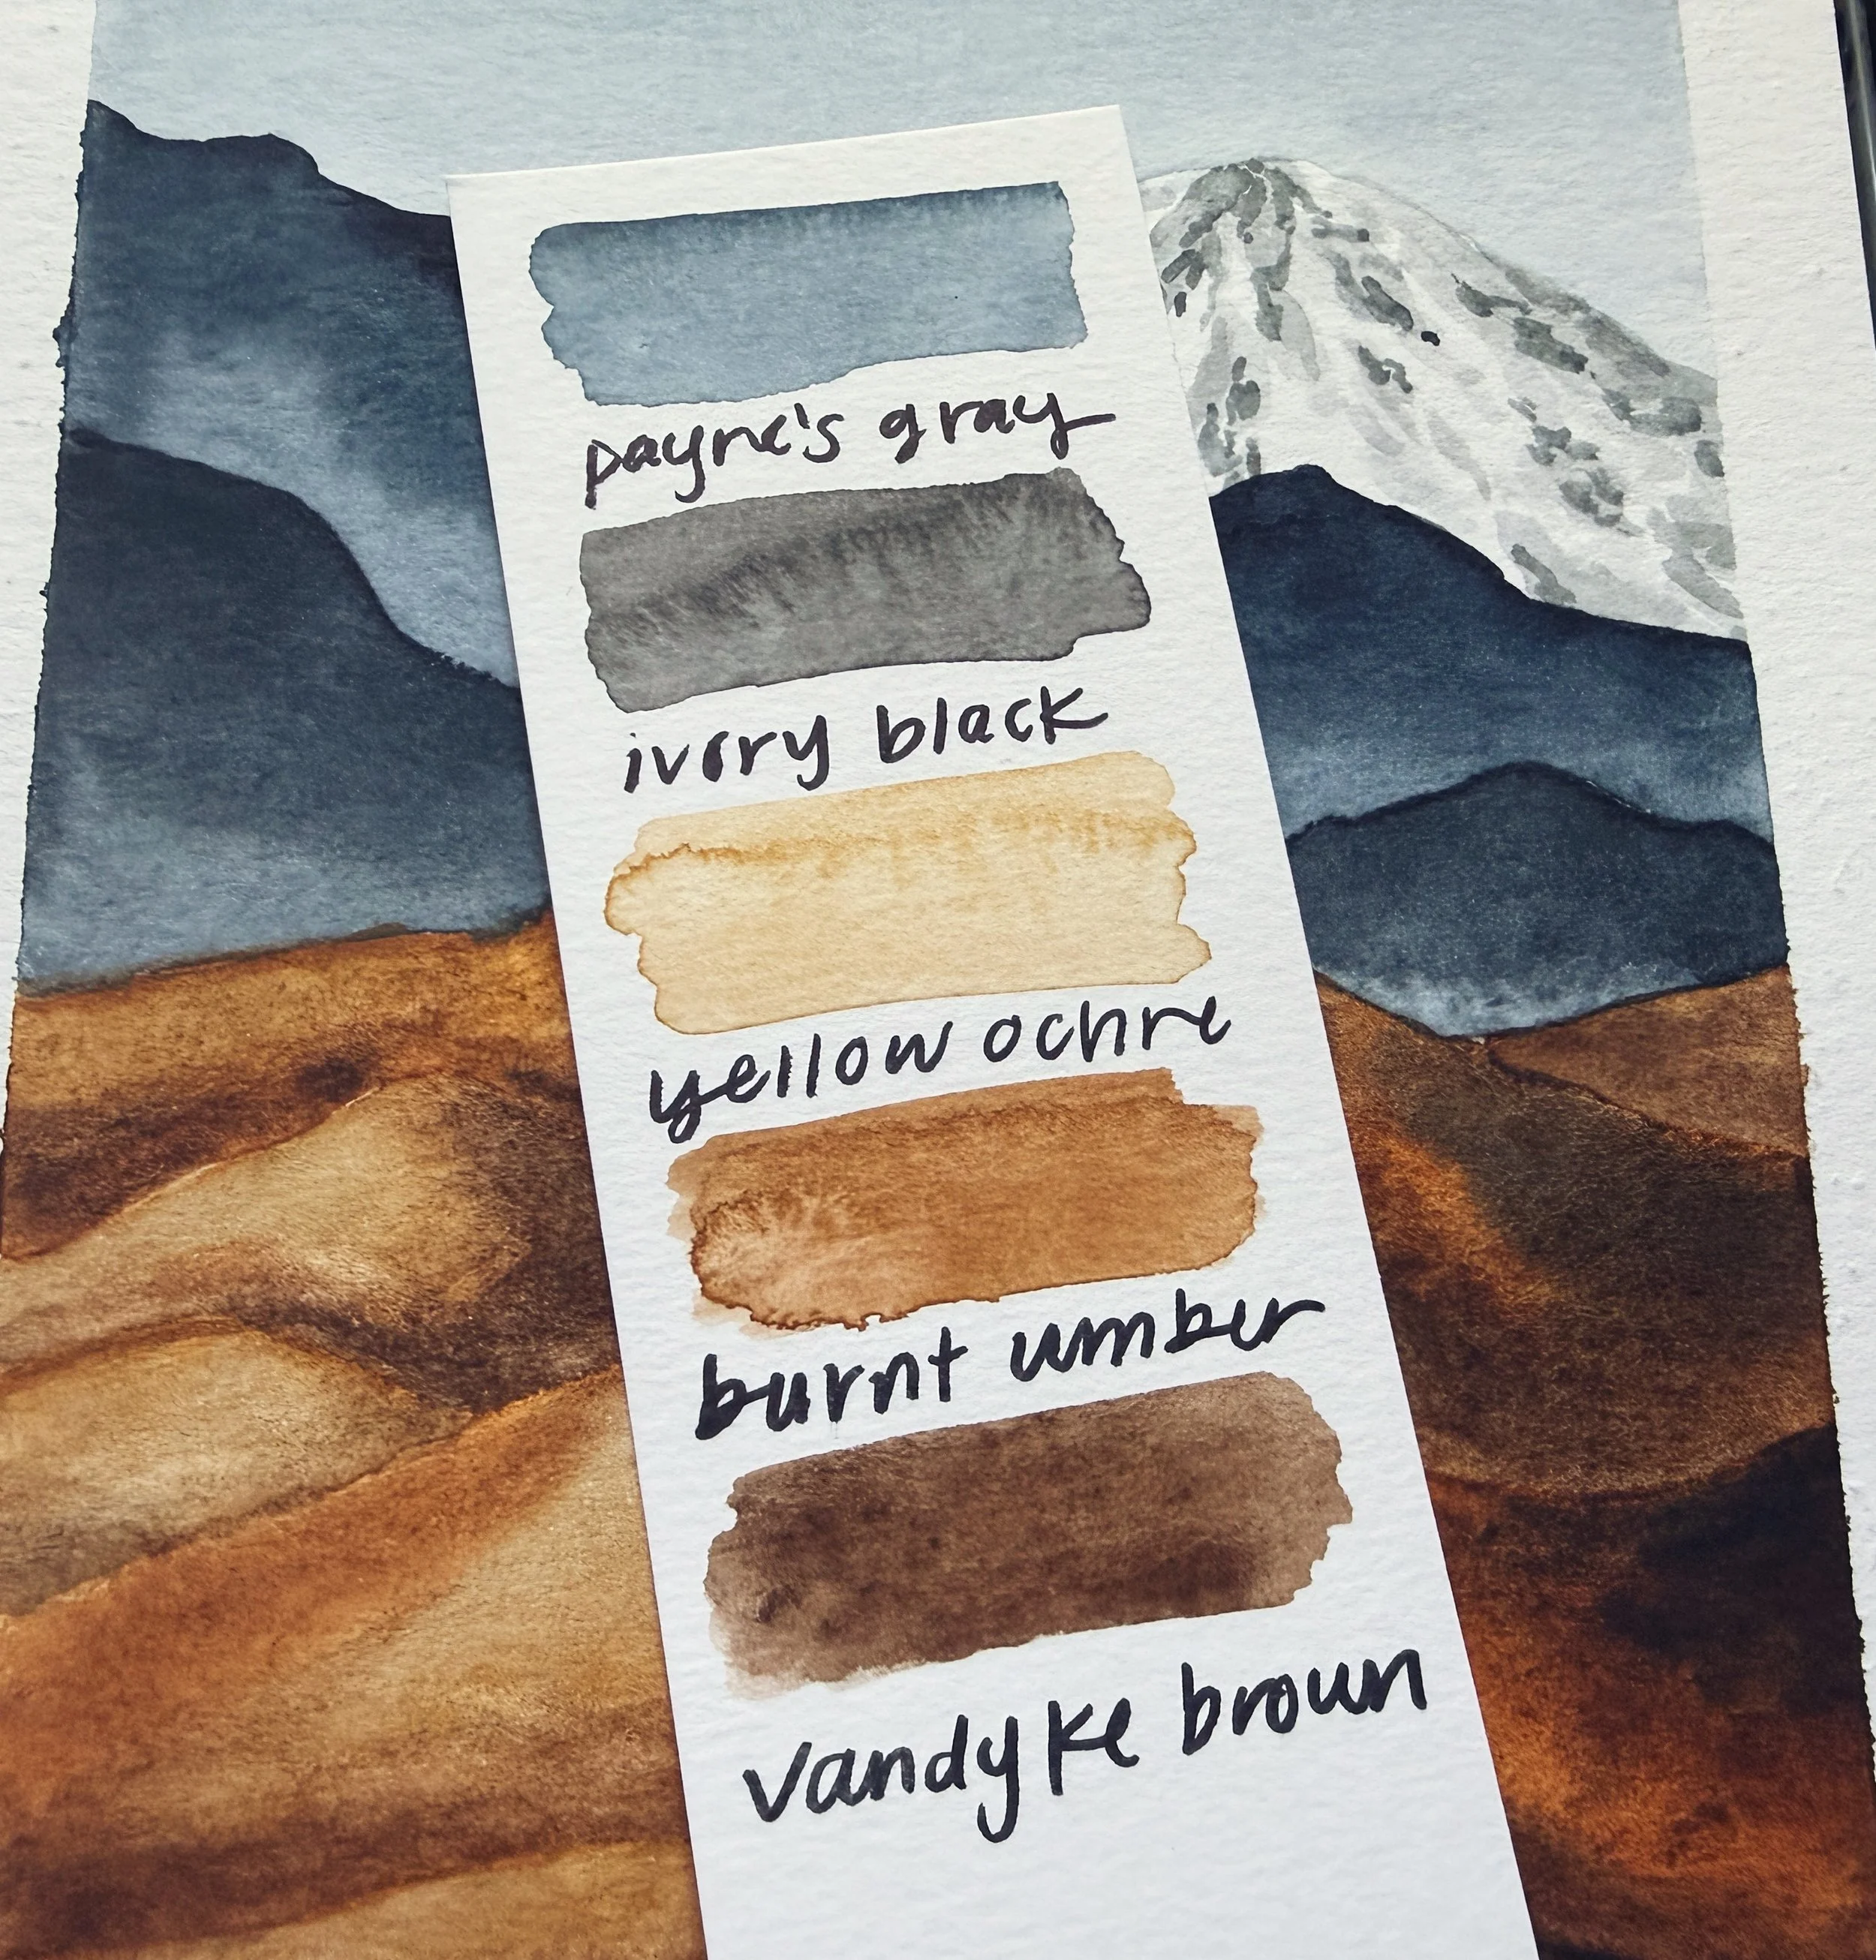 payne's gray
ivory black
yellow ochre
burnt umber
vandyke brown